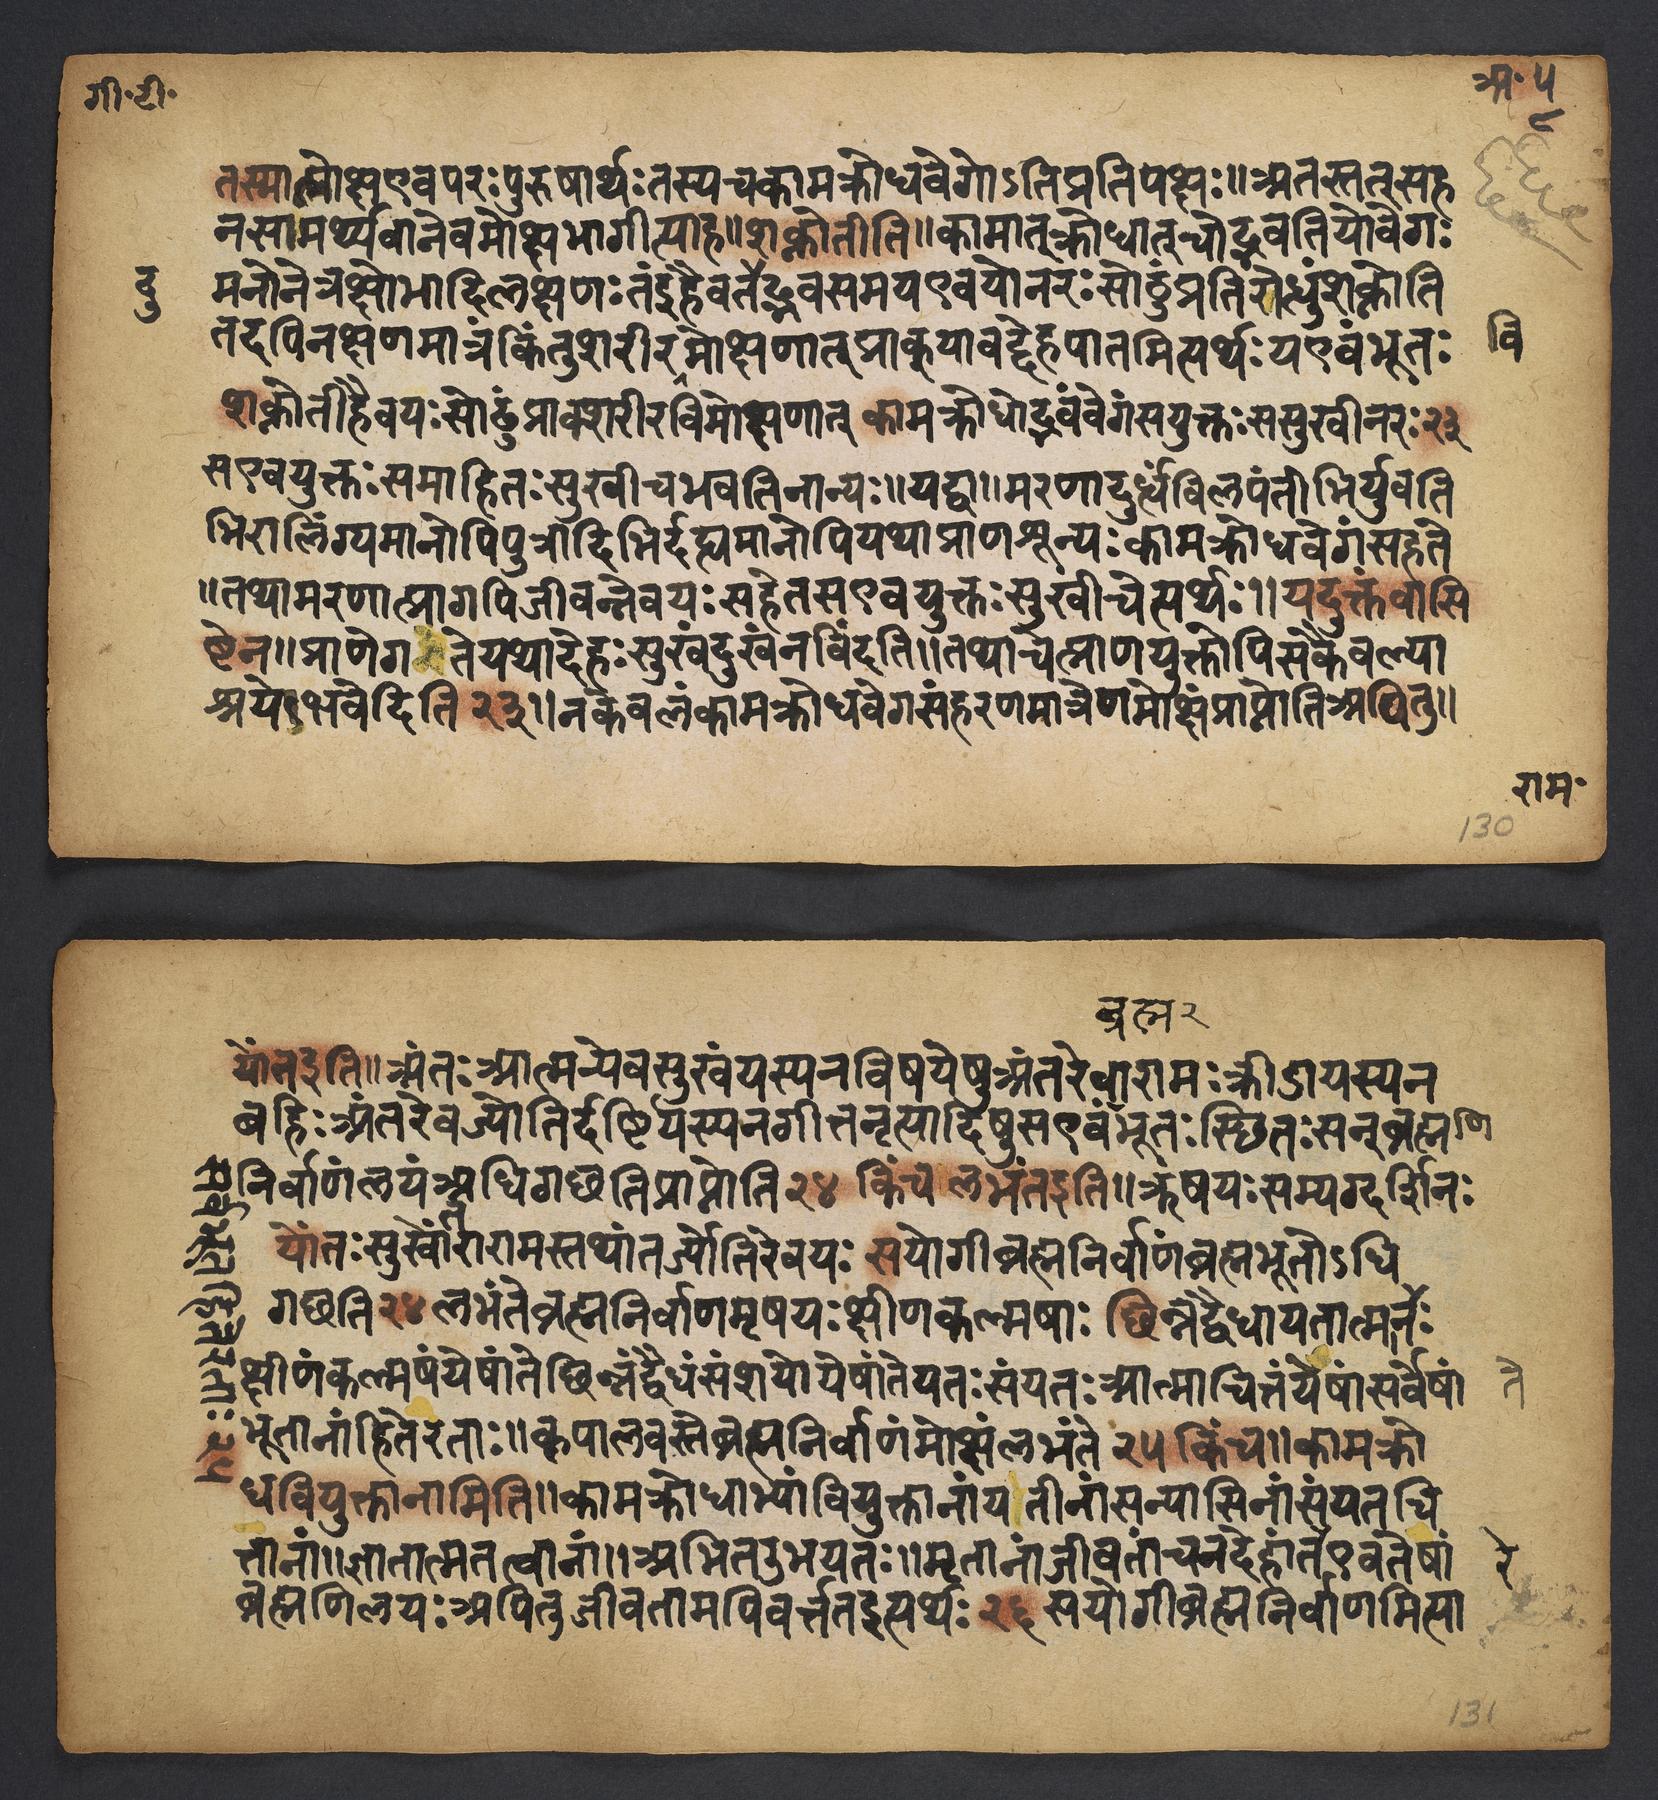 गी॰टी॰
अ॰ ५
तस्मान्मोक्षएवपरःपुरुषार्थःतस्यचकामक्रोधवेगोऽतिप्रतिपक्षः॥अतस्तत्सह
नसामर्थ्यवानेवमोक्षभागीत्याह॥शक्नोतीति॥कामात्क्रोधात्चोद्भवतियोवेगः
दु
मनोनेत्रक्षोभादिलक्षणःतंइहैवतदुद्भवसमयएवयोनरःसोढुंप्रतिरोद्धुंशक्नोति
तदपिनक्षणमात्रंकिंतुशरीरमोक्षणात्प्राक्यावद्देहपातमित्यर्थःयएवंभूतः
वि
शक्नोतीहैवयःसोढुंप्राक्शरीरविमोक्षणात् कामक्रोधोद्भवंवेगंसयुक्तःससुखीनरः२३
सएवयुक्तःसमाहितःसुखीचभवतिनान्यः॥यद्वा॥मरणादुर्ध्वंविलपंतीभिर्युवति
भिरालिंग्यमानोपिपुत्रादिभिर्दह्यमानोपियथाप्राणशून्यःकामक्रोधवेगंसहते
॥तथामरणात्प्रागपिजीवन्नेवयःसहेतसएवयुक्तःसुखीचेत्यर्थः॥यदुक्तंवासि
ष्टेन॥प्राणेगतेयथादेहःसुखंदुखंनविंदति॥तथाचेत्प्राणयुक्तोपिसकैवल्या
श्रयेभवेदिति २३॥नकेवलंकामक्रोधवेगसंहरणमात्रेणमोक्षंप्राप्नोतिअपितु॥
राम॰
130
ब्रह्म२
योंतइति॥अंतःआत्मन्येवसुखंयस्यनविषयेषुअंतरेवारामःक्रीडायस्यन
बहिःअंतरेवज्योतिर्दष्टिर्यस्यनगीतनृत्यादिषुसएवंभूतःस्छितःसन्ब्रह्मणि
निर्वाणंलयंअधिगछतिप्राप्नोति २४ किंच लभंतइति॥ऋषयःसम्यग्दर्शिनः
योंतःसुखोंतरारामस्तथांतर्ज्योतिरेवयः सयोगीब्रह्मनिर्वाणंब्रह्मभूतोऽधि
गछति २४ लभंतेब्रह्मनिर्वाणमृषयःक्षीणकल्मषाः छिन्नद्वैधायतात्मनः
सर्वभूतहितेरताः२५
क्षीणंकल्मषंयेषांतेछिन्नंद्वैधंसंशयोयेषांतेयतःसंयतःआत्माचित्तंयेषांसर्वेषां
ते
भूतानांहितेरताः॥कृपालवस्तेब्रह्मनिर्वाणंमोक्षंलभंते २५ किंच॥कामक्रो
धवियुक्तानामिति॥कामक्रोधाभ्यांवियुक्तानांयतीनांसन्यासिनांसंयतचि
त्तानां॥ज्ञातात्मतत्वानां॥अभितउभयतः॥मृतानांजीवतांचनदेहांतेएवतेषां
रे
ब्रह्मणिलयःअपितुजीवतामपिवर्त्ततइत्यर्थः २६ सयोगीब्रह्मनिर्वाणमित्या
131